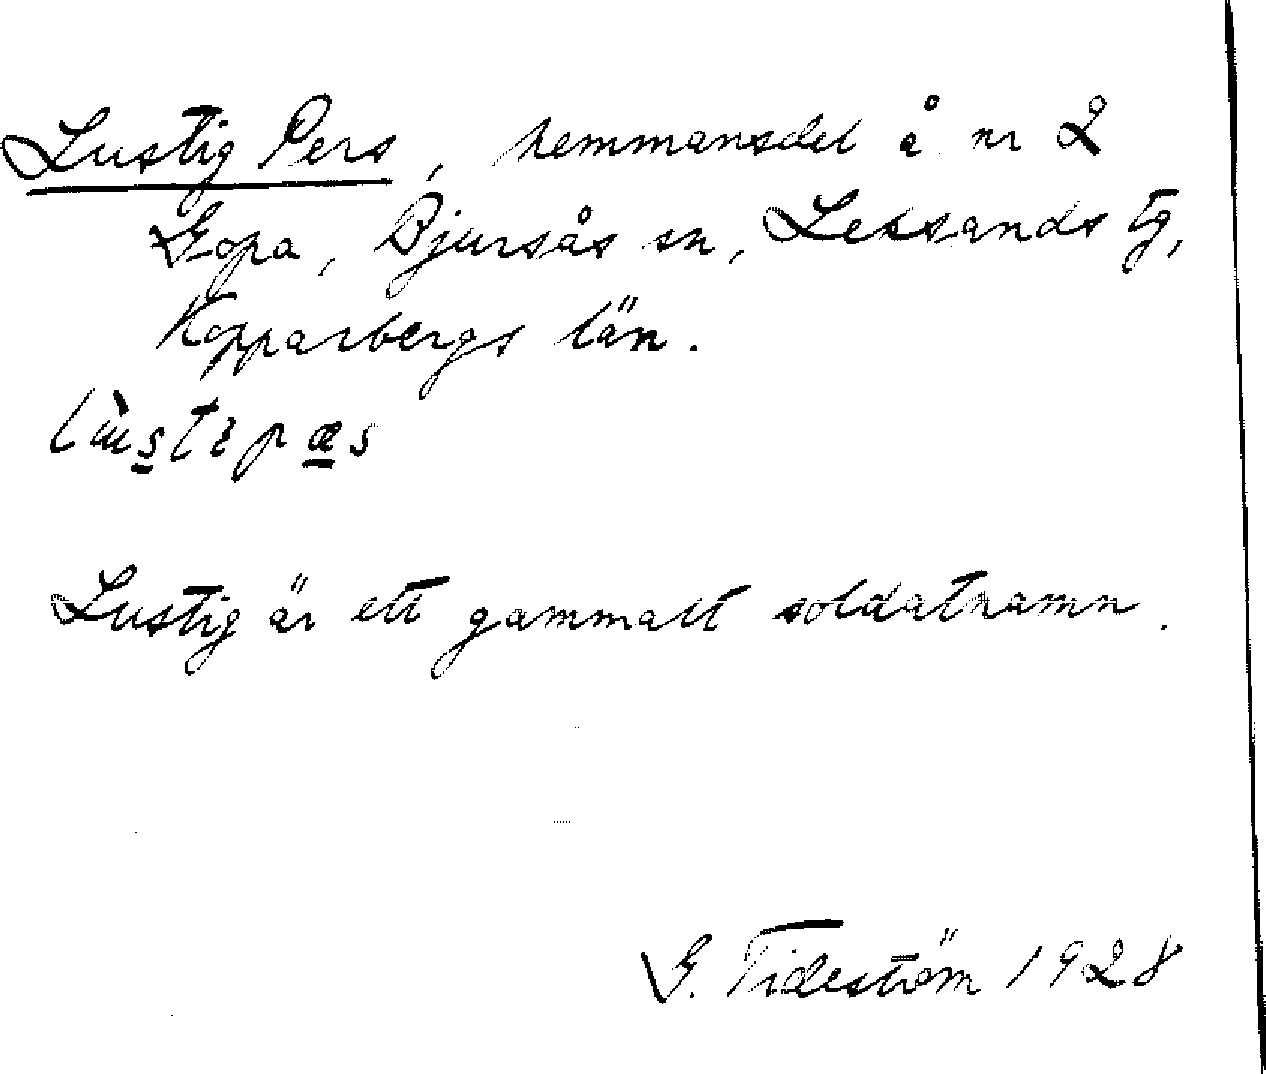 Lustig Pers, hemmansdel å nr 2
Gopa, Bjursås sn, Leksands tg,
Kopparbergs län.
lùstepæs
Lustig är ett gammalt soldatnamn.
G. Tideström 1928